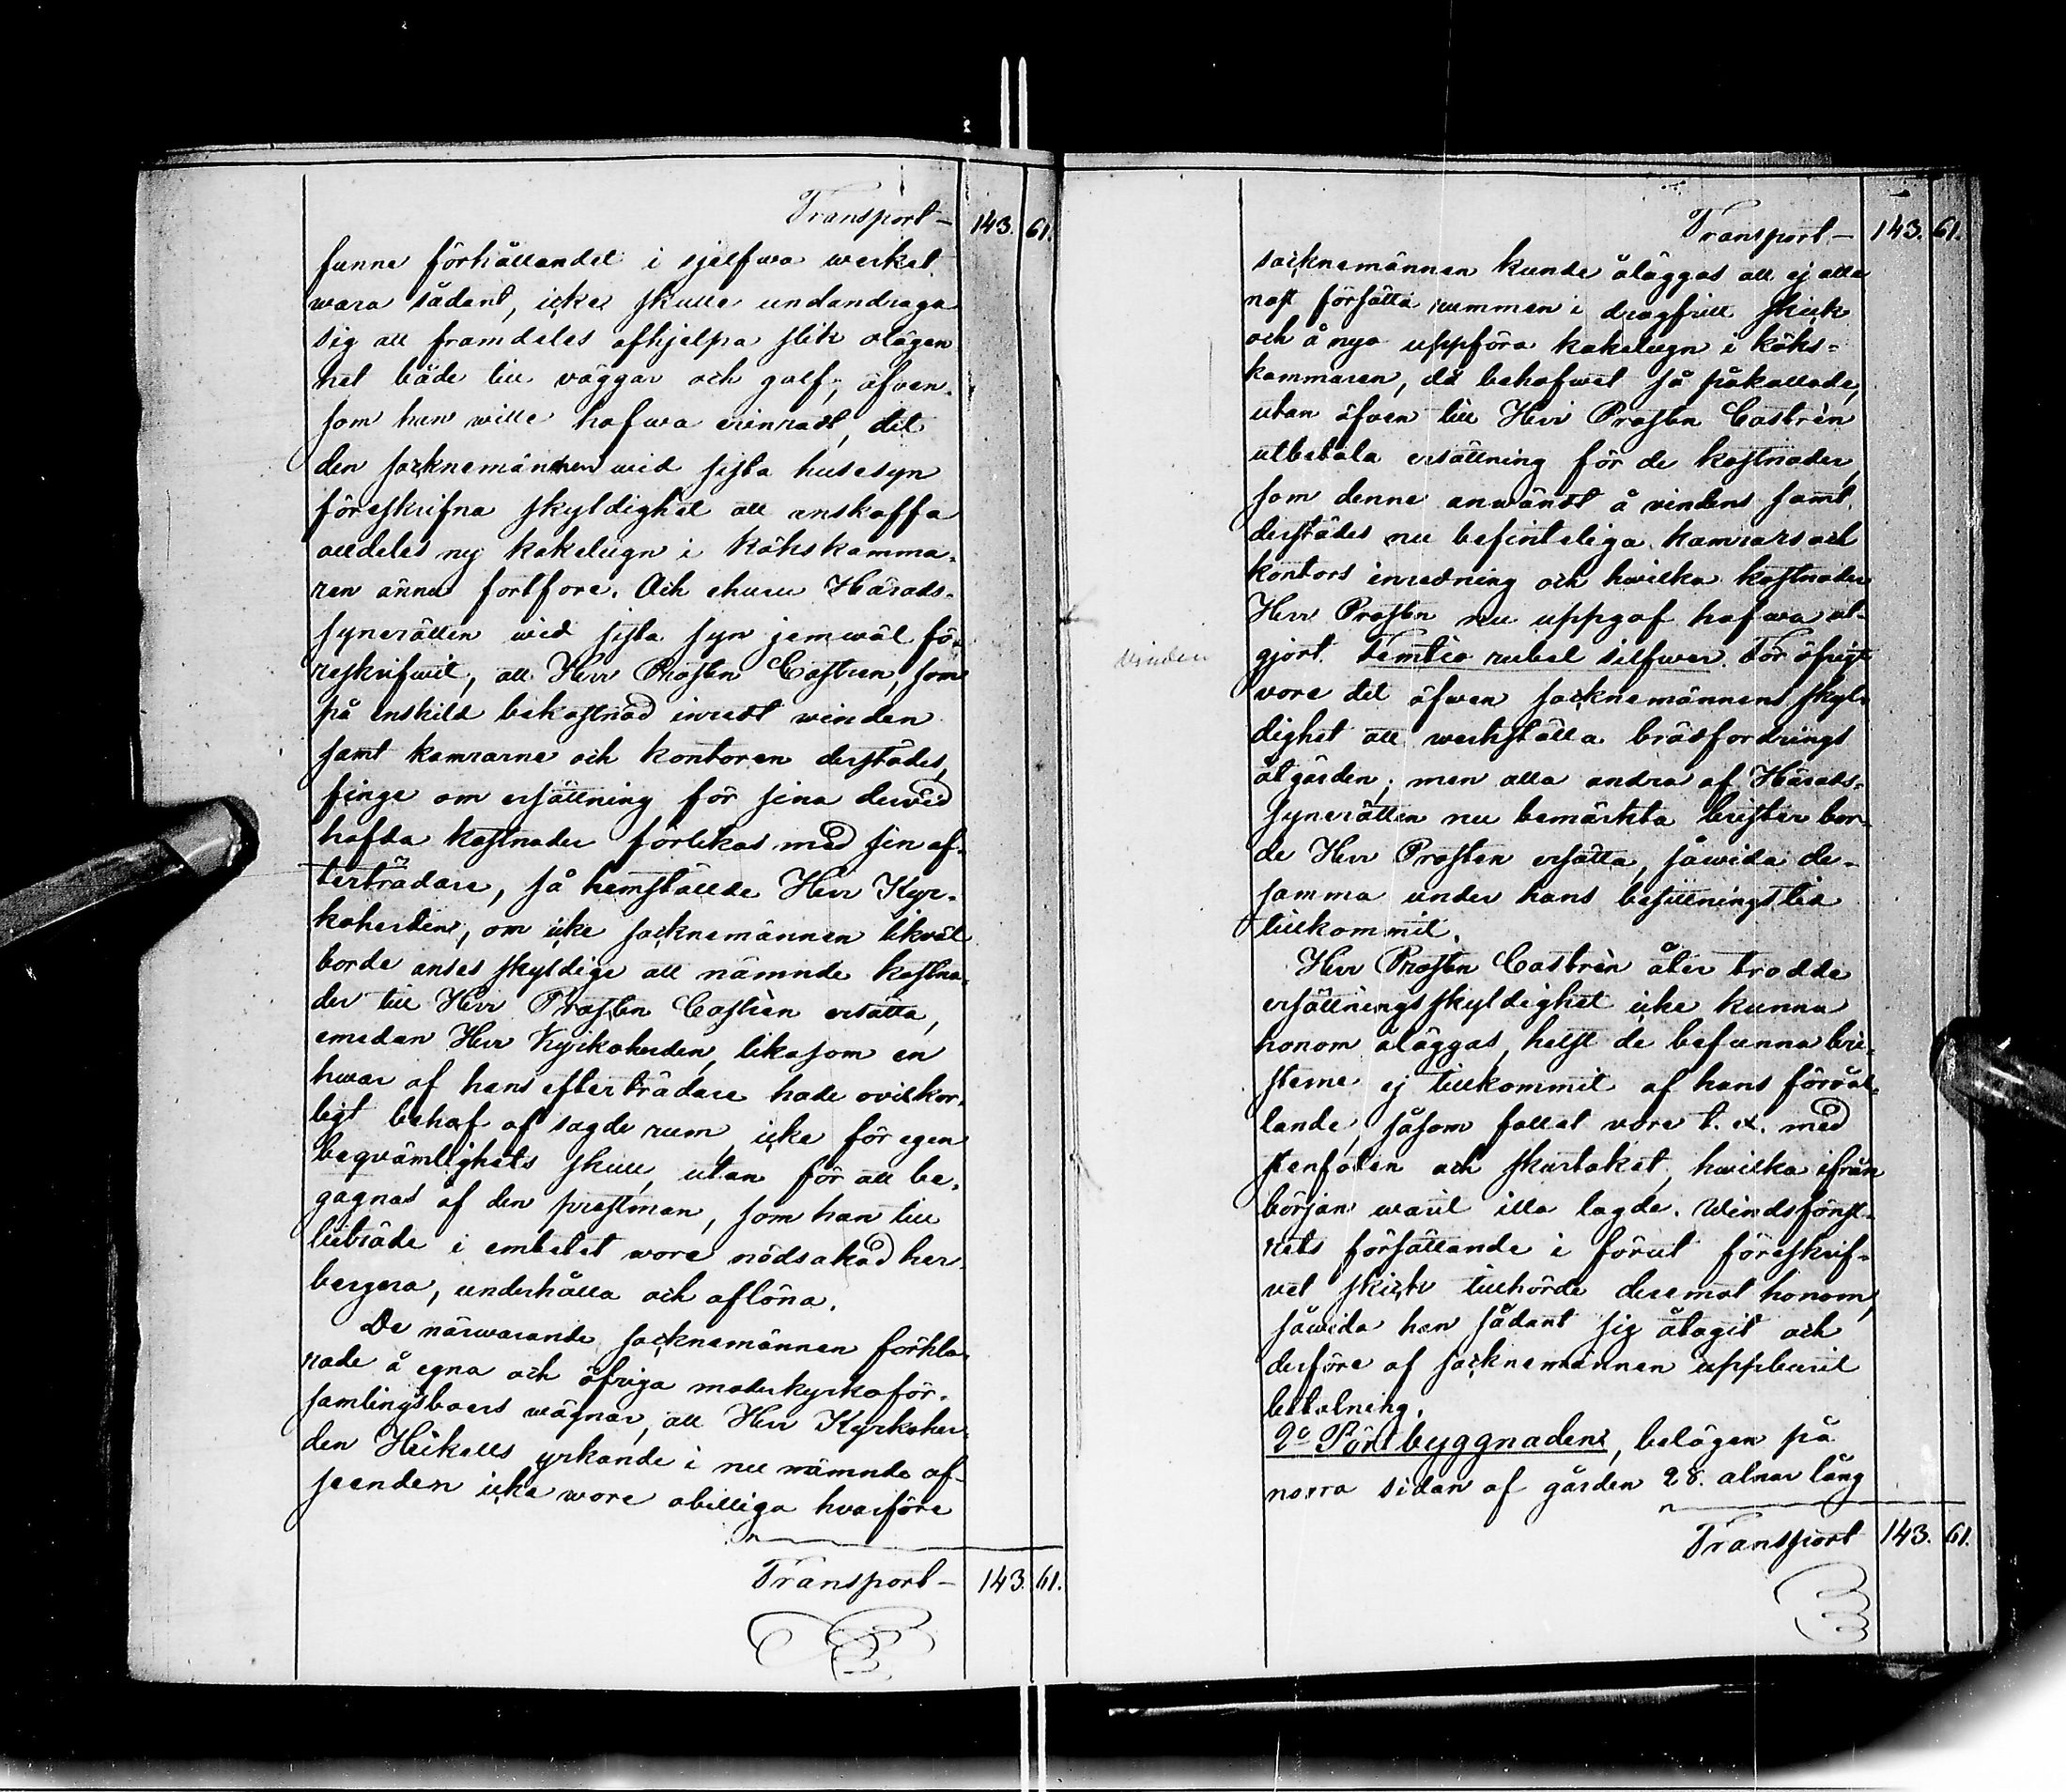 Transport — 143. 61.
funne förhållandet i sjelfwa werket
wara sådant, icke skulle undandraga
sig att framdeles afhjelpa slik olägen
het både till väggar och golf; äfven-
som han wille hafwa erinradt, det
den socknemännen wid sista husesyn
föreskrifna skyldighet att anskaffa
alldeles ny kakelugn i Kökskamma-
ren ännu fortfore. Och ehuru Härads-
synerätten wid sista syn jemwäl fö-
reskrifwit, att Herr Prosten Castren, som
på enskild bekostnad inredt winden
samt kamrarne och kontoren derstädes,
finge om ersättning för sina dervid
hafda kostnader förlikas med sin ef-
terträdare, så hemställde Herr Kyr-
koherden, om icke socknemännen likväl
borde anses skyldige att nämnde kostna-
der till Herr Prosten Castrèn ersätta,
emedan Herr Kyrkoherden, likasom en
hwar af hans efterträdare hade ovilkor-
ligt behof af sagde rum, icke för egen
beqvämlighets skull, utan för att be-
gagnas af den prestman, som han till
biträde i embetet wore nödsakad her-
bergera, underhålla och aflöna.
De närwarande socknemännen förkla-
rade å egna och öfriga moderkyrkoför-
samlingsboers wägnar, att Herr Kyrkoher-
den Heikells yrkande i nu nämnde af-
seenden icke wore obilliga hvarföre
Transport — 143. 61.
Transport — 143. 61.
socknemännen kunde åläggas att ej alle
nast försätta rummen i dragfritt skick
och å nyo uppföra kakelugn i köks-
kammaren, då behofwet så påkallade,
utan äfven till Herr Prosten Castrèn
utbetala ersättning för de kostnader,
som denne användt å vindens samt
derstädes nu befinteliga kamrars och
kontors inredning och hwilka kostnader
Herr Prosten nu uppgaf hafwa ut-
vinden
gjort Femtio rubel silfwer. För öfrigt
vore det äfwen socknemännens skyl-
dighet att werkställa brädfordrings
åtgärden; men alla andra af Härads-
synerätten nu bemärkta brister bor-
de Herr Prosten ersätta, såwida de-
samma under hans besittningstid
tillkommit.
Herr Prosten Castrèn åter trodde
ersättningsskyldighet icke kunna
honom åläggas, helst de befunna bri-
sterne ej tillkommit af hans förvål-
lande, såsom fallet vore t. ex. med
stenfoten och skurtaket, hwilka ifrån
början warit illa lagde. Windsfönst-
rets försättande i förut föreskrif-
vet skick tillhörde deremot honom,
såwida han sådant sig åtagit och
derföre af socknemännen uppburit
betalning.
2o Pörtbyggnaden, belägen på
norra sidan af gården 28. alnar lång
Transport 143. 61.